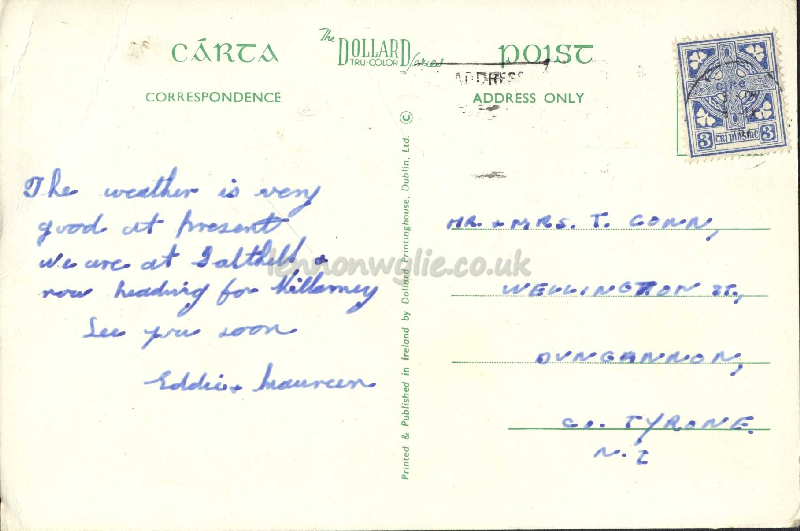 CÁRTA
CORRESPONDENCE
The DOLLARD
TRU-COLOR Series
POIST
ADDRESS
ADDRESS ONLY
3 3
The weather is very
good at present
we are at &
now heading for Killarney
See you soon
Eddie & Maureen
Printed & Published in Ireland by Dollard Printinghouse, Dublin, Ltd. ©
MR. & MRS. T. CONN,
WELLINGTON ST.,
DUNGANNON,
CO. TYRONE.
N. I
lennonwylie.co.uk